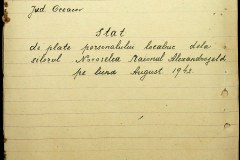 Jud. Orheiu
Stat
de plata personalului localnic dela
setorul Novoselca Raionul Alexandrogold
pe luna August 1942.